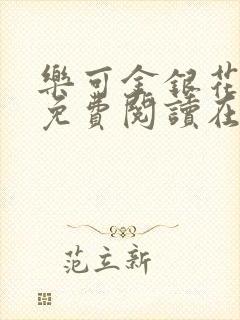 樂可金銀花
免費閱讀在
范立新